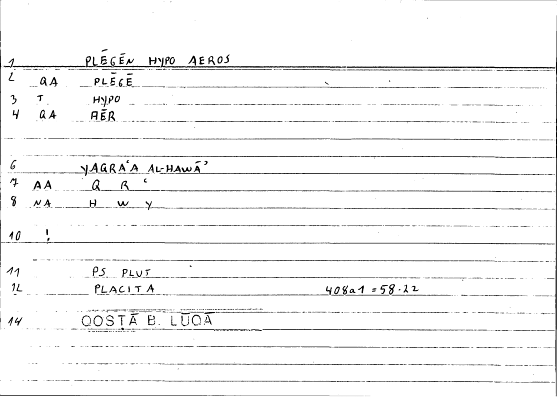 1 PLĒGĒN HYPO AEROS
2 QA PLĒGĒ
3 T HYPO
4 QA AĒR
6 YAGRAʿA AL-HAWĀʾ
7 AA Q R ʿ
8 NA H W Y
10 !
11 PS. PLUT
12 PLACITA 408a1 = 58.22
14 QOSTĀ B. LŪQĀ